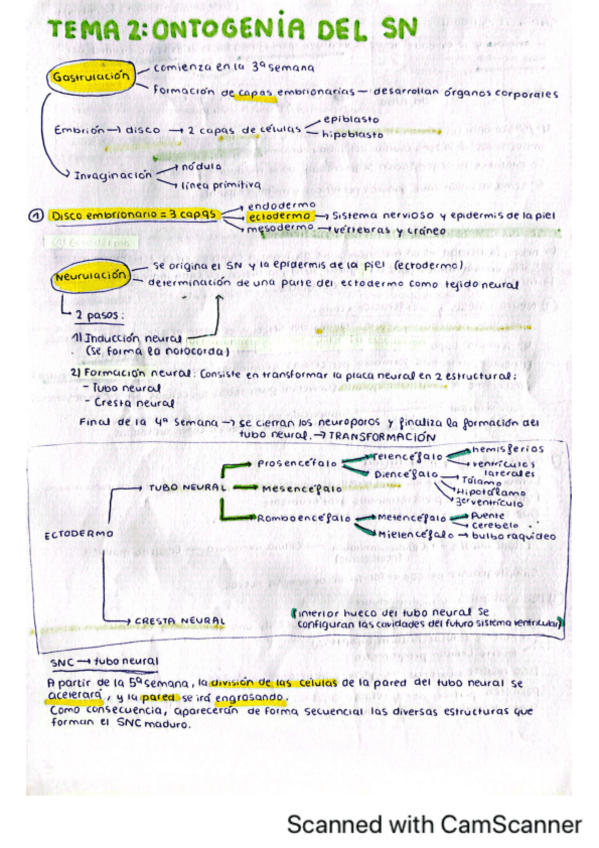 TEMA 2: ONTOGENIA DEL SN
Gastrulación
comienza en la 3ª semana
Formación de capas embrionarias — desarrollan órganos corporales
Embrión → disco → 2 capas de células
epiblasto
hipoblasto
Invaginación
nódulo
línea primitiva
① Disco embrionario = 3 capas
endodermo
ectodermo → Sistema nervioso y epidermis de la piel
mesodermo → vértebras y cráneo
Neurulación
se origina el SN y la epidermis de la piel (ectodermo)
determinación de una parte del ectodermo como tejido neural
2 pasos:
1) Inducción neural
(se forma la notocorda)
2) Formación neural: Consiste en transformar la placa neural en 2 estructural:
- Tubo neural
- Cresta neural
Final de la 4ª semana → se cierran los neuroporos y finaliza la formación del
tubo neural. → TRANSFORMACIÓN
ECTODERMO
TUBO NEURAL
Prosencéfalo
Telencéfalo
hemisferios
ventrículos
laterales
Diencéfalo
Tálamo
Hipotálamo
3er ventrículo
Mesencéfalo
Romboencéfalo
Metencéfalo
Puente
Cerebelo
Mielencéfalo → bulbo raquídeo
CRESTA NEURAL
(interior hueco del tubo neural se
configuran las cavidades del futuro sistema ventricular)
SNC → tubo neural
A partir de la 5ª semana, la división de las células de la pared del tubo neural se
acelerará, y la pared se irá engrosando.
Como consecuencia, aparecerán de forma secuencial las diversas estructuras que
forman el SNC maduro.
Scanned with CamScanner